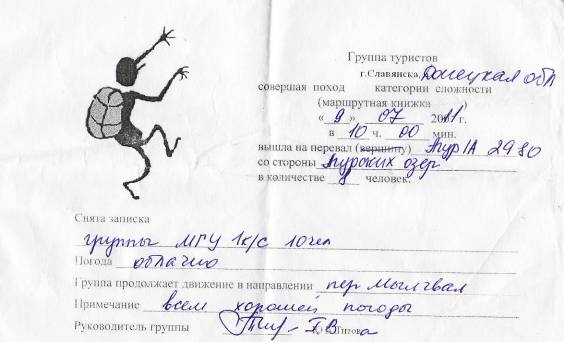 Группа туристов
г.Славянска, Донецкая обл
совершая поход категории сложности
(маршрутная книжка )
« 9 » 07 2011 г.
в 10 ч. 00 мин.
вышла на перевал (вершину) Тур 1А 2980
со стороны Турских озер
в количестве 8 человек.
Снята записка
группы МГУ 1к/с 10чел
Погода облачно
Группа продолжает движение в направлении пер Мылгвал
Примечание всем хорошей погоды
Руководитель группы Титова